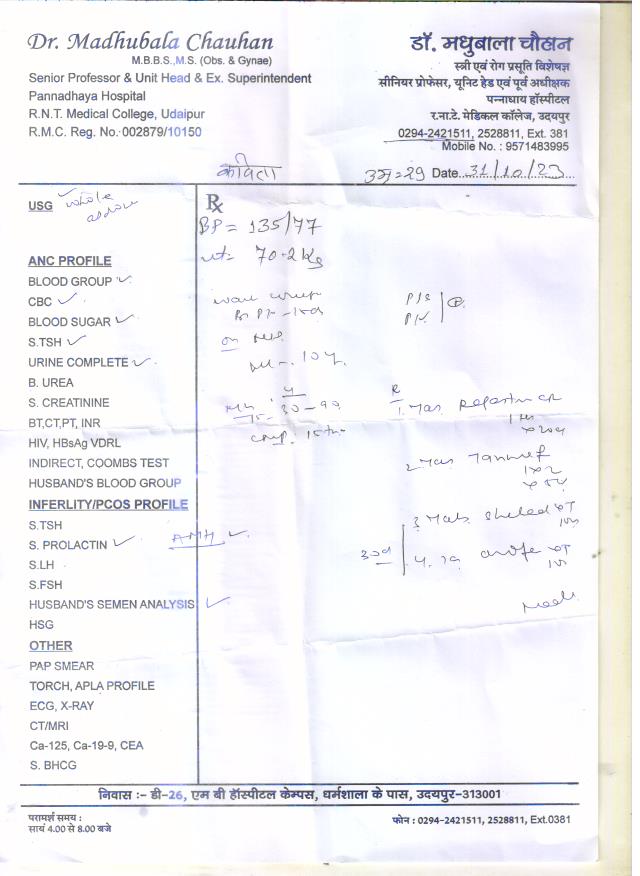 Dr. Madhubala Chauhan
M.B.B.S.,M.S. (Obs. & Gynae)
Senior Professor & Unit Head & Ex. Superintendent
Pannadhaya Hospital
R.N.T. Medical College, Udaipur
R.M.C. Reg. No.-002879/10150
डॉ. मधुबाला चौहान
स्त्री एवं रोग प्रसूति विशेषज्ञ
सीनियर प्रोफेसर, यूनिट हेड एवं पूर्व अधीक्षक
पन्नाधाय हॉस्पीटल
र.ना.टे. मेडिकल कॉलेज, उदयपुर
0294-2421511, 2528811, Ext. 381
Mobile No. : 9571483995
कविता
उम्र=29 Date...31/10/23
USG whole
Rx
BP = 135/77
wt= 70.2 Kg
ANC PROFILE
BLOOD GROUP
CBC
BLOOD SUGAR
S.TSH
URINE COMPLETE
B. UREA
S. CREATININE
BT,CT,PT, INR
HIV, HBsAg VDRL
INDIRECT, COOMBS TEST
HUSBAND'S BLOOD GROUP
INFERLITY/PCOS PROFILE
S.TSH
S. PROLACTIN AMH
S.LH
S.FSH
HUSBAND'S SEMEN ANALYSIS
HSG
OTHER
PAP SMEAR
TORCH, APLA PROFILE
ECG, X-RAY
CT/MRI
Ca-125, Ca-19-9, CEA
S. BHCG
P/S
P/V
30d
निवास :- डी-26, एम बी हॉस्पीटल केम्पस, धर्मशाला के पास, उदयपुर-313001
परामर्श समय :
सायं 4.00 से 8.00 बजे
फोन : 0294-2421511, 2528811, Ext.0381